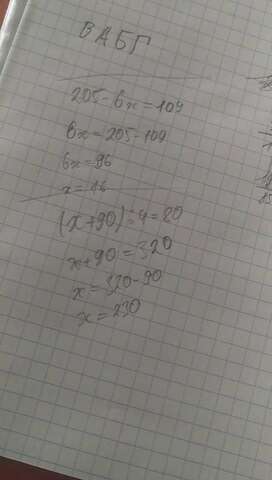 ВАБГ
205-6x=109
6x=205-109
6x=96
x=16
(x+90):4=80
x+90=320
x=320-90
x=230